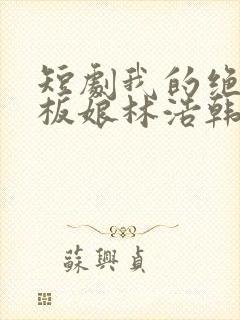 短劇我的绝
板娘林浩韩
蘇興貞